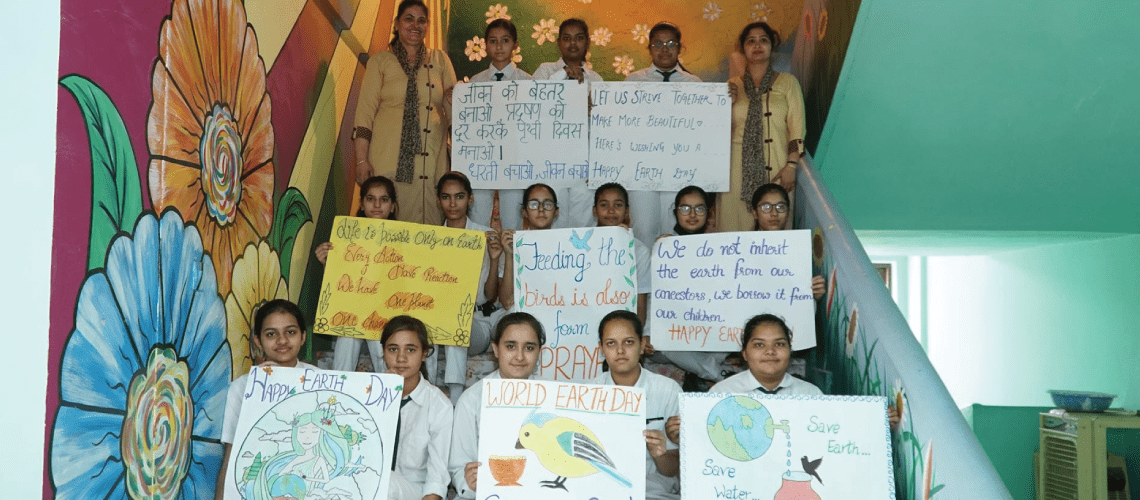 जीवन को बेहतर
बनाओ, प्रदूषण को
दूर करके पृथ्वी दिवस
मनाओ।
धरती बचाओ, जीवन बचाओ
LET US STRIVE TOGETHER TO
MAKE MORE BEAUTIFUL
HERE'S WISHING YOU A
HAPPY EARTH DAY
Life is possible only on Earth
Every Action
Have Reaction
We have
One planet
One chance
Feeding the
birds is also
form
PRAY
We do not inherit
the earth from our
ancestors, we borrow it from
our children
HAPPY EAR
HAPPY EARTH DAY
WORLD EARTH DAY
Save
Earth...
Save
Water...